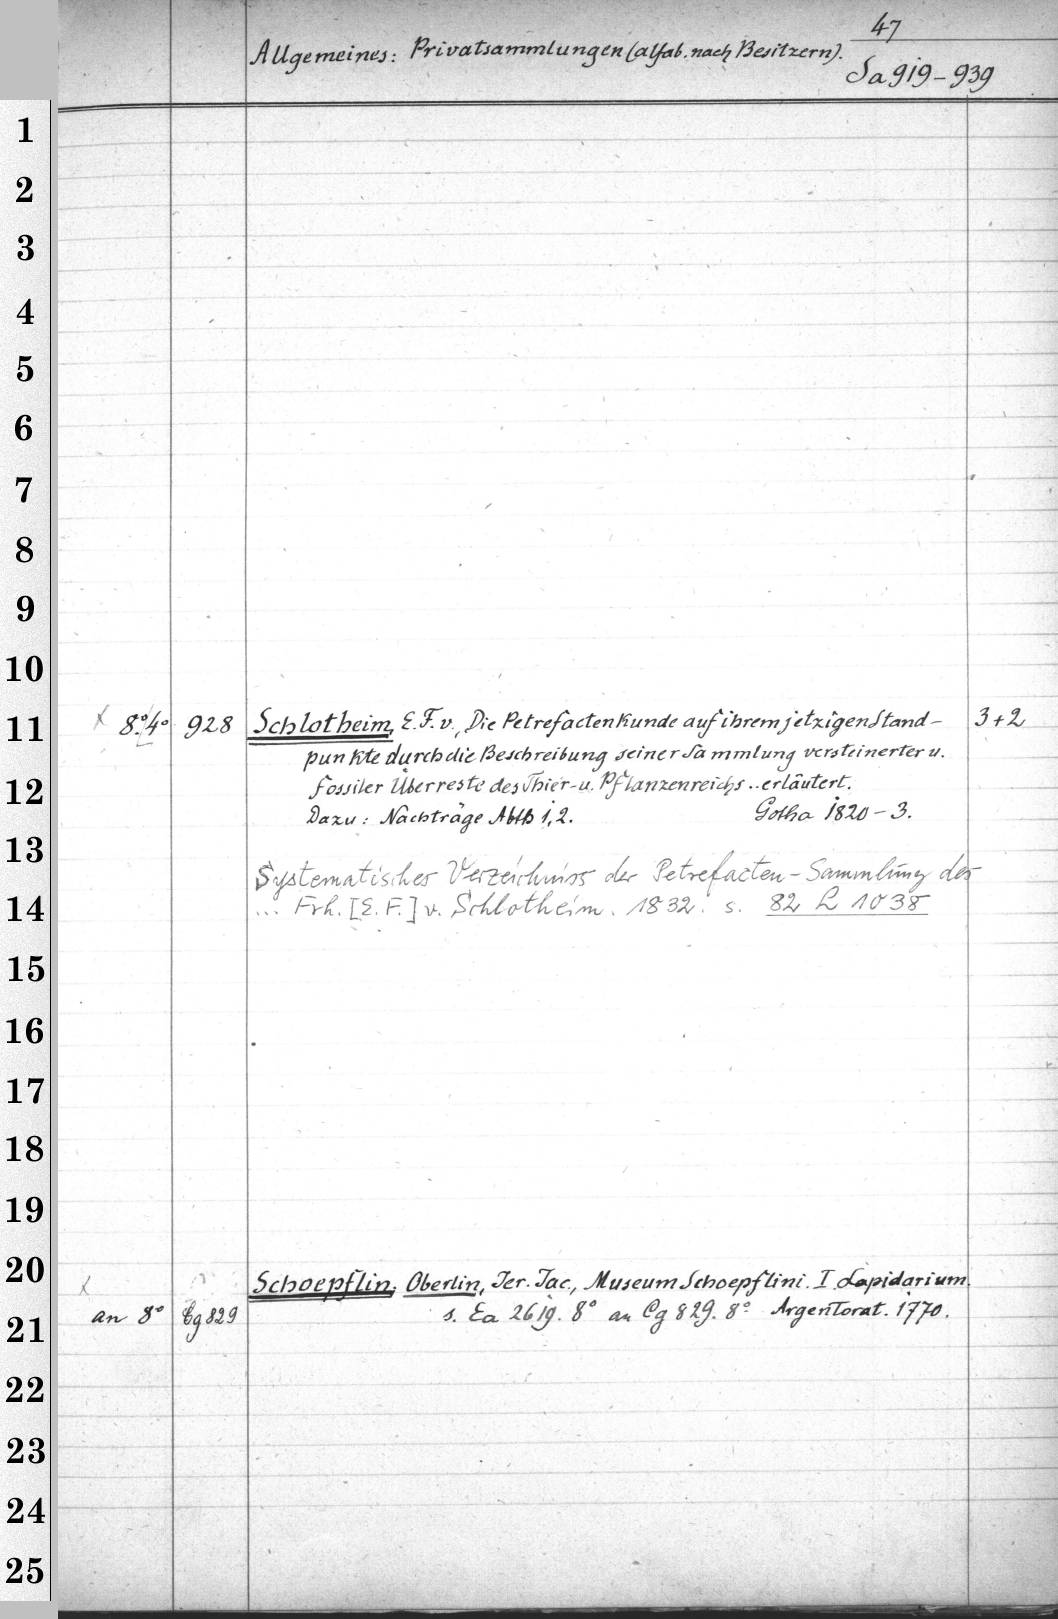 47
Allgemeines: Privatsammlungen (alfab. nach Besitzern).
Sa 919–939
1
2
3
4
5
6
7
8
9
10
11
12
13
14
15
16
17
18
19
20
21
22
23
24
25
x 8° 4° 928 Schlotheim, E. F. v., Die Petrefactenkunde auf ihrem jetzigen Stand- 3+2
punkte durch die Beschreibung seiner Sammlung versteinerter u.
fossiler Überreste des Thier- u. Pflanzenreichs .. erläutert.
Dazu: Nachträge Abth 1, 2. Gotha 1820–3.
Systematisches Verzeichniss der Petrefacten-Sammlung des
... Frh. [E. F.] v. Schlotheim. 1832. s. 82 L 1038
x Schoepflin, Oberlin, Jer. Jac., Museum Schoepflini. I Lapidarium.
an 8° Cg 829 s. Ea 2619. 8° an Cg 829. 8° Argentorat. 1770.